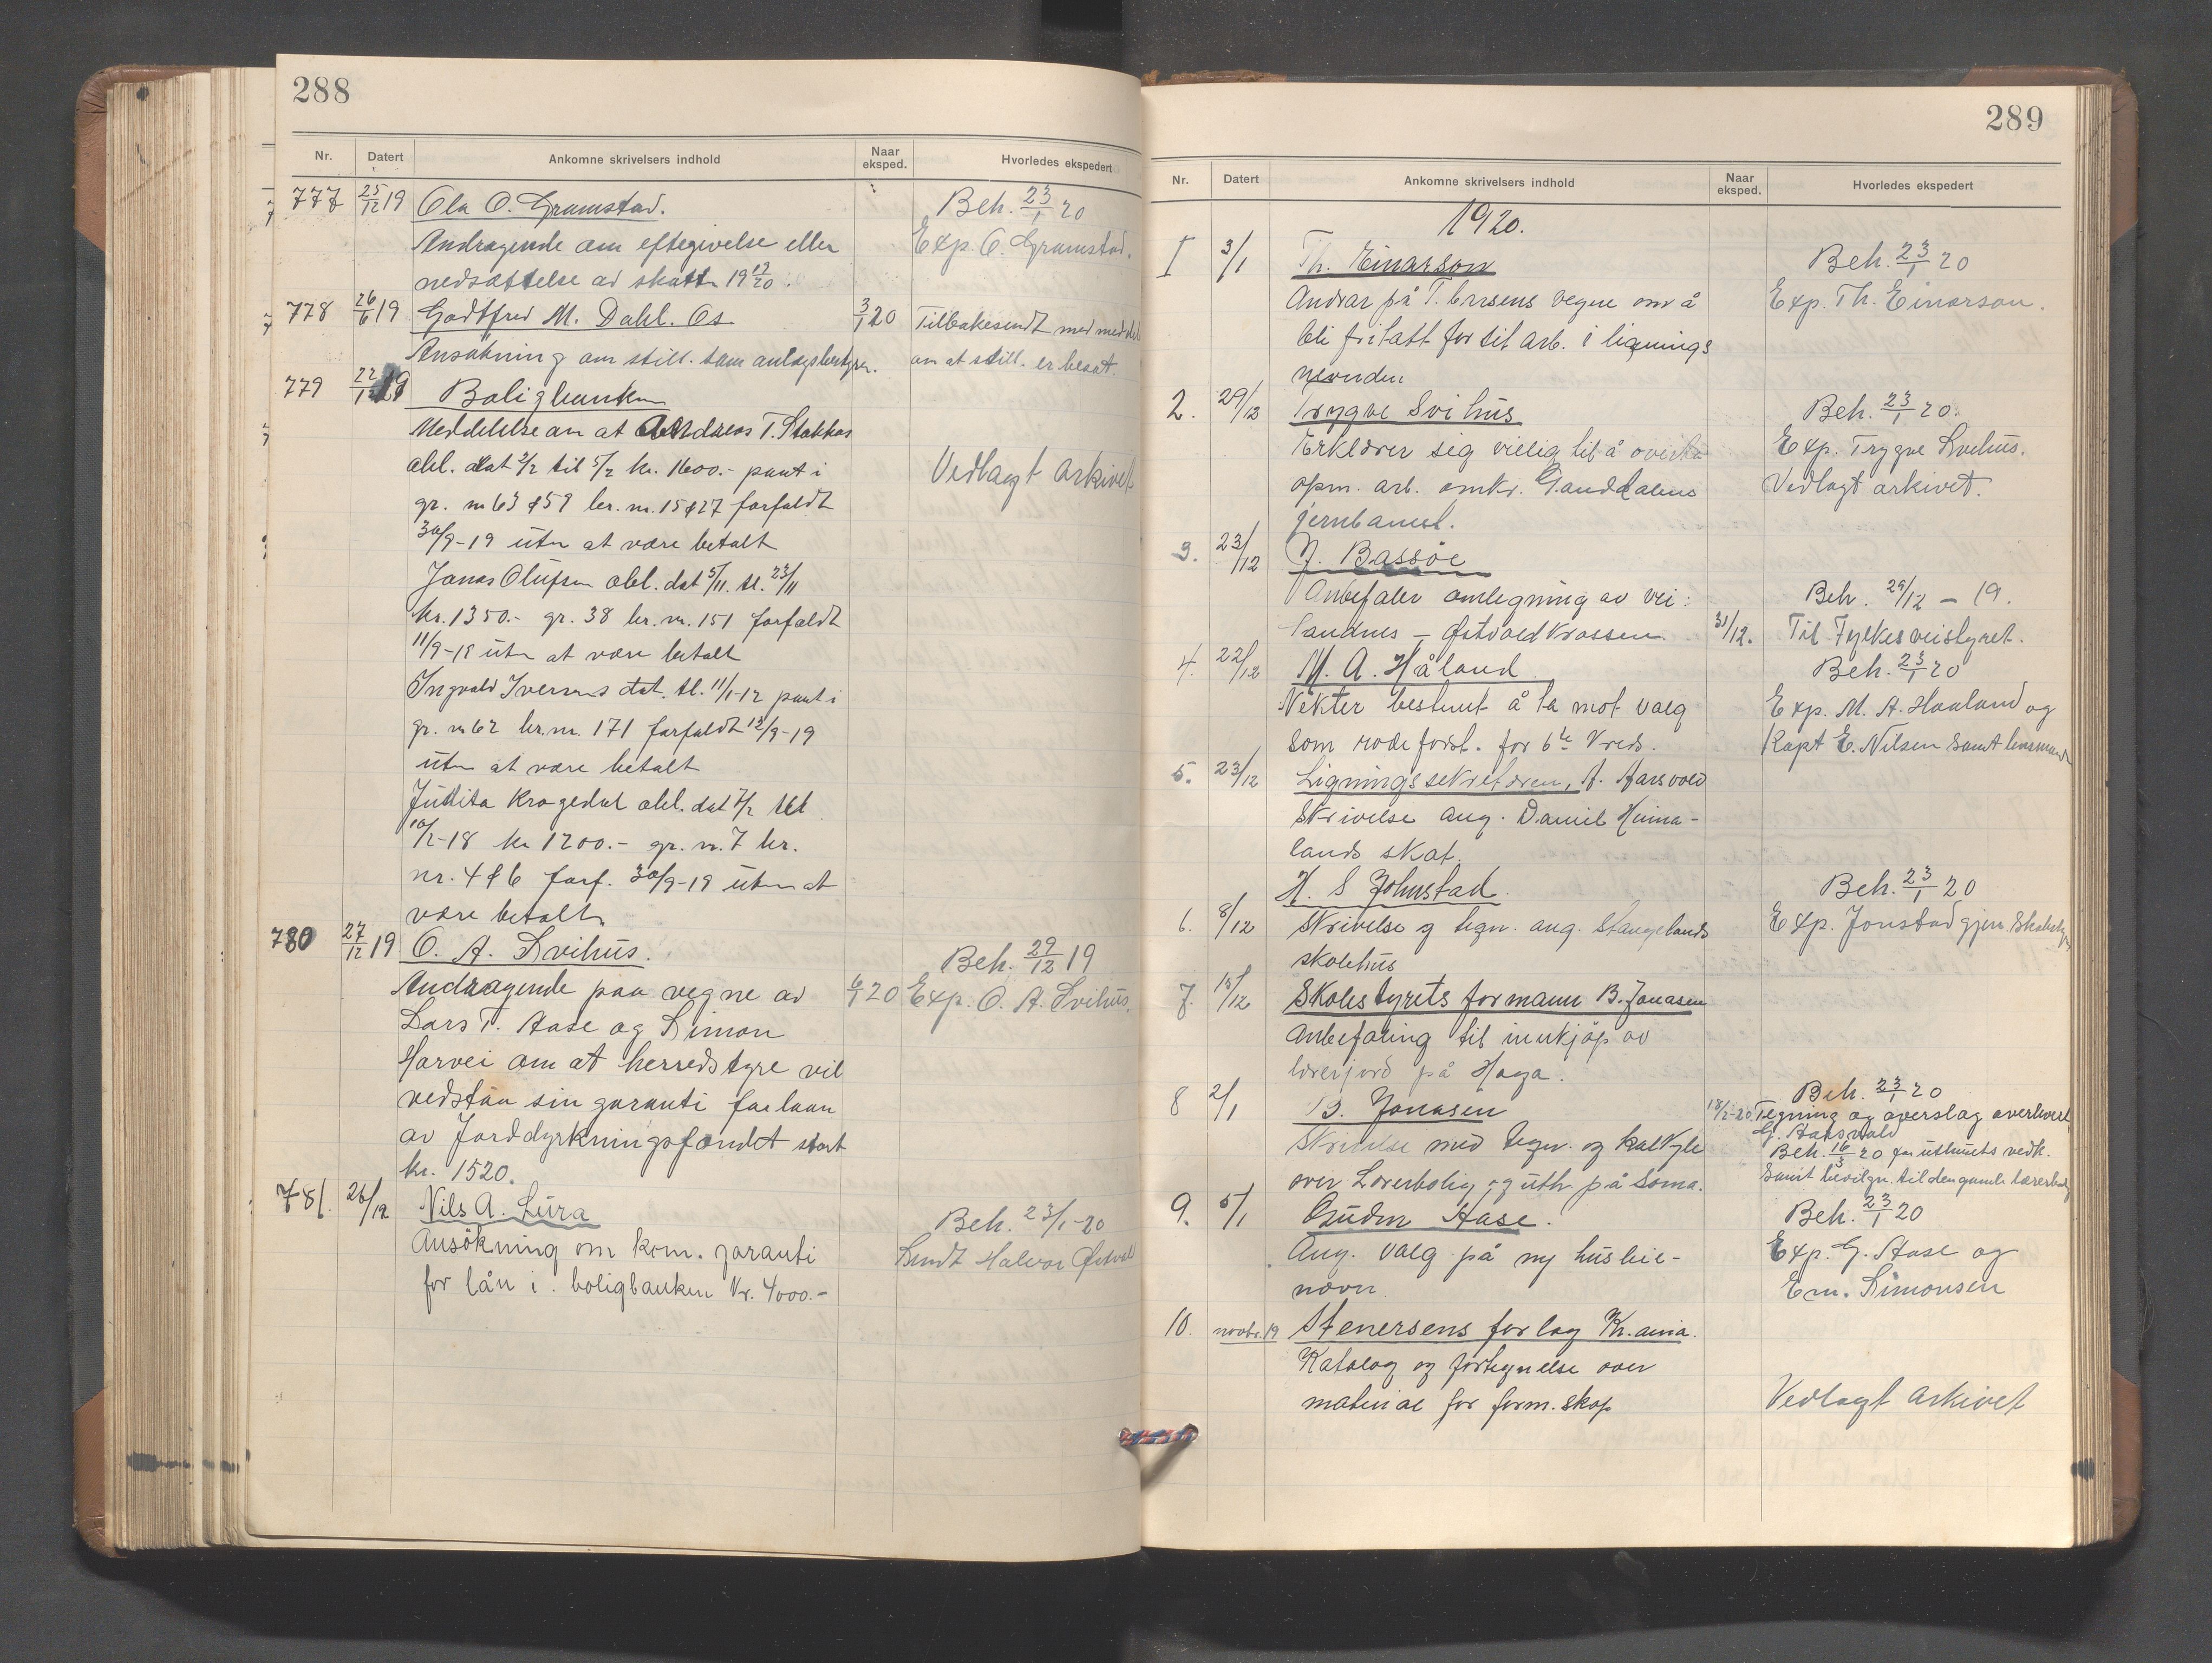 288
Nr. Datert Ankomne skrivelsers indhold Naar eksped. Hvorledes ekspedert
777 25/12 19 Ola O. Gramstad. Beh. 23/1 20
Andragende om eftegivelse eller Exp. O. Gramstad.
nedsættelse av skatt 19 19/20.
778 26/6 19 Godtfred M. Dahl. Os 3/1 20 Tilbakesendt med meddel
Ansøkning om still. som anlægsbestyrer. om at still. er besat.
779 22/12 19 Boligbanken
Meddelelse om at Andreas T. Stokkas
obl. dat 3/2 til 5/2 kr. 1600.- pant i Vedlagt Arkivet
gr. nr 63 & 59 br. nr. 15 & 27 forfaldt
30/9-19 uten at være betalt
Jonas Olufsen obl. dat 5/11. tl. 23/11
kr. 1350.- gr. 38 br. nr. 151 forfaldt
11/9-18 uten at være betalt
Ingvald Iversens dat. tl. 11/1-12 pant i
gr. nr 62 br. nr. 171 forfaldt 13/9-19
uten at være betalt
Judita Krogedal obl. dat 7/2 tll
10/2-18 kr 1200.- gr. nr. 7 br.
nr. 4 & 6 forf. 30/9-19 uten at
være betalt
780 27/12 19 O. A. Svihus. Beh. 29/12 19
Andragende paa vegne av 6/1 20 Exp. O. A. Svihus.
Lars T. Aase og Simon
Harvei om at herredstyre vil
vedstaa sin garanti for laan
av Jorddyrkningsfondet stort
kr. 1520.
781. 26/12 Nils A. Lura Beh. 23/1-20
Ansökning om kom. garanti Sendt Halvor Østvold
for lån i. boligbanken Kr. 4000.-
289
Nr. Datert Ankomne skrivelsers indhold Naar eksped. Hvorledes ekspedert
1920.
1 3/1 Th. Einarson Beh. 23/1 20
Andrar på T. vegne om å Exp. Th. Einarson.
bli fritatt for sit arb. i lignings
nevnden
2. 29/12 Trygve Svihus Beh. 23/1 20.
Erklærer sig villig til å overta Exp. Trygve Svihus.
opm. arb. omkr. Ganddalens Vedlagt arkivet.
jernbanest.
3. 23/12 J. Bassöe
Anbefaler omlegning av vei: Beh. 29/12 - 19.
Sandnes - Østvoldkrossen. 31/12. Til Fylkesveistyret.
4. 22/12 M. A. Håland Beh. 23/1 20
Nekter bestemt å ta mot valg Exp. M. A. Haaland og
som rodeforst. for 6te Vreds. Kapt E. Nilsen samt lensmand
5. 23/12 Ligningssekretæren, A. Aarsvold
Skrivelse ang. Daniel Heima-
lands skat.
H. S Johnstad. Beh. 23/1 20
6. 8/12 Skrivelse og tegn. ang. Stangelands Exp. Jonstad gjen. Skolesty
skolehus
7. 15/12 Skolestyrets formann B. Jonasen
Anbefaling til innkjøp av
lærerjord på Hoga.
8 2/1 B. Jonasen Beh. 23/1 20
Skrivelse med tegn. og kalkyle 18/2-20. Tegning og overslag overlevert
G. Aarsvold
over Lærerbolig og uth. på Soma. Beh. 16/3 20 for uthusets vedk.
samt bevilgn. til den gamle lærerbolig
9. 5/1 Gudm Aase. Beh. 23/1 20
Ang. valg på ny husleie- Exp. G. Aase og
nævn Em. Simonsen
10. novbr. 19 Stenersens forlag Kr.ania.
Katalog og fortegnelse over
materiae for form. skap Vedlagt Arkivet